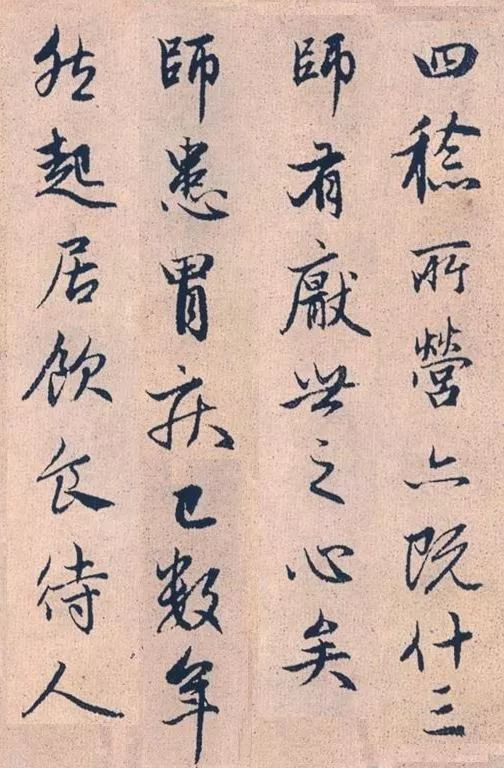 四稔所營亦既什三
師有厭世之心矣
師患胃疾已數年
然起居飲食待人